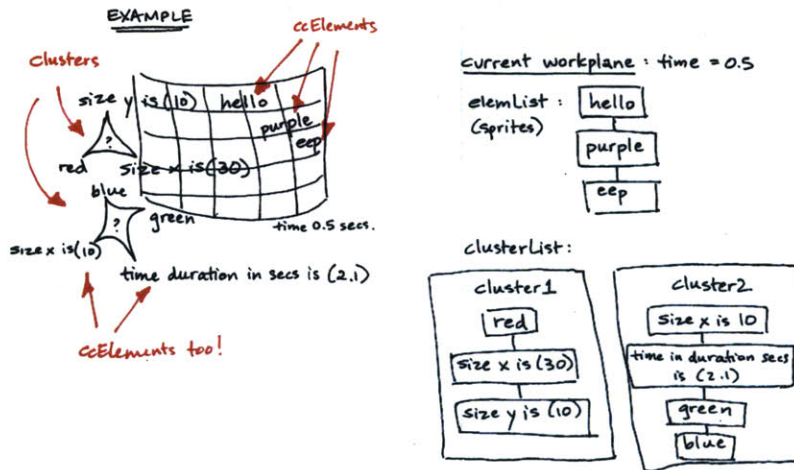 EXAMPLE
ccElements
clusters
size y is (10)
hello
purple
eep
?
red
size x is (30)
blue
?
green
time 0.5 secs.
size x is (10)
time duration in secs is (2.1)
ccElements too!
current workplane : time = 0.5
elemList :
(sprites)
hello
purple
eep
clusterList:
cluster1
red
size x is (30)
size y is (10)
cluster2
size x is 10
time in duration secs
is (2.1)
green
blue